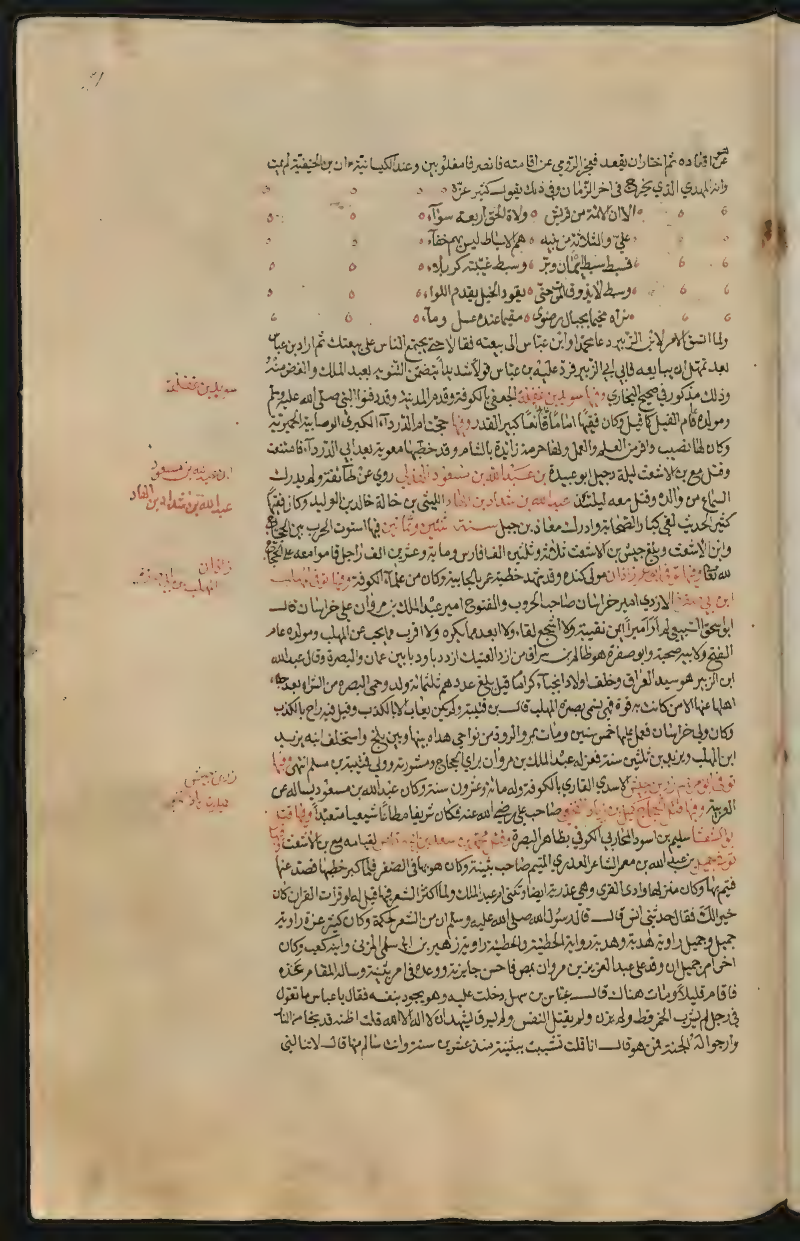 عن اقعاده ثم اختار ان يقعد فعجز الرومي عن اقامته فانصرفا مغلوبين وعند الكيسانية ان بن الحنفية لم يمت
وانه المهدي الذي يخرج في اخر الزمان وفي ذلك يقول كثير عزة
الا ان الائمة من قريش ولاة الحق اربعة سواء
علي والثلاثة من بنيه هم الاسباط ليس بهم خفاء
فسبط سبط ايمان وبر وسبط غيبته كربلاء
وسبط لا يذوق الموت حتى يقود الخيل يقدم اللواء
نراه مخيما بجبال رضوى مقيما عنده عسل وماء
ولما اتسق الامر لابن الزبير دعا محمدا وابن عباس الى بيعته فقالا حتى يجتمع الناس على بيعتك ثم اراد بن عباس
وذلك مذكور في صحيح البخاري وفيها سويد بن غفلة الجعفي بالكوفة وقدم المدينة وقد دفنوا النبي صلى الله عليه وسلم
سويد بن غفلة
ومولده عام الفيل كما قيل وكان فقيها اماما قانعا كبير القدر وفيها حجت ام الدرداء الكبرى الوصابية الحميرية
وكان لها نصيب وافر من العلم والعمل ولها حرمة زائدة بالشام وقد خطبها معوية بعد ابي الدرداء فامتنعت
وقتل مع بن الاشعث ليلة دجيل ابو عبيدة بن عبد الله بن مسعود الهذلي روى عن طائفة ولم يدرك
السماع من والده وقتل معه ليلتئذ عبد الله بن شداد بن الهاد الليثي بن خالة خالد بن الوليد وكان فقيها
عبد الله بن شداد بن الهاد
كثير الحديث لقي كبار الصحابة وادرك معاذ بن جبل سنة ثنتين وثمانين فيها استوت الحرب بين الحجاج
وابن الاشعث وبلغ جيش بن الاشعث ثلاثة وثلثين الف فارس ومائة وعشرين الف راجل قاموا معه على الحجاج
لله تعالى وفيها توفي ابو عمر زاذان مولى كندة وقد شهد خطبة عمر بالجابية وكان من علماء الكوفة وفيها توفي المهلب
زاذان
المهلب بن ابي صفرة
ابن ابي صفرة الازدي امير خراسان صاحب الحروب والفتوح امير عبد الملك بن مروان على خراسان قال
ابو اسحق السبيعي لم ار اميرا ايمن نقيبة ولا اشجع لقاء ولا ابعد مما يكره ولا اقرب مما يحب من المهلب ومولده عام
الفتح ولابيه صحبة وابو صفرة هو ظالم بن سراق من ازد العتيك ازد دبا ودبا بين عمان والبصرة وقال عبد الله
ابن الزبير هو سيد العراق وخلف اولادا نجباء كراما قيل بلغ عددهم ثلثمائة ولد وحمى البصرة من الشراة بعد جلاء
اهلها عنها الا من كانت به قوة فهي تسمى بصرة المهلب قال بن قتيبة ولم يكن يعاب الا بالكذب وقيل فيه راح بالكذب
وكان ولي خراسان فعمل عليها خمس سنين ومات بمرو الروذ من نواحي هراة بينها وبين بلخ واستخلف ابنه يزيد
ابن المهلب ويزيد بن ثلثين سنة فعزله عبد الملك بن مروان براي الحجاج ومشورته وولى قتيبة بن مسلم انتهى وفيها
توفي ابو مريم زر بن حبيش الاسدي القاري بالكوفة وله مائة وعشرون سنة وكان عبد الله بن مسعود يساله عن
زر بن حبيش
العربية وفيها قتل الحجاج كميل بن زياد النخعي صاحب علي رضي الله عنه وكان شريفا مطاعا شيعيا متعبدا وفيها قتل
كميل بن زياد النخعي
ابو الشعثا سليم بن اسود المحاربي الكوفي بظاهر البصرة وقتل محمد بن سعد بن ابي وقاص لقيامه مع بن الاشعث وفيها
توفي جميل بن عبد الله بن معمر الشاعر العذري المتيم صاحب بثينة وكان هو بها في الصغر فلما كبر خطبها فصد عنها
فتيم بها وكان منزلها وادي القرى وهي عذرية ايضا وتكنى ام عبد الملك ولما اكثر الشعر فيها قيل له لو قرات القران كان
خيرا لك فقال حدثني انس قال قال رسول الله صلى الله عليه وسلم ان من الشعر لحكمة وكان كثير عزة راوية
جميل وجميل راوية هدبة وهدبة راوية الحطيئة والحطيئة راوية زهير بن ابي سلمى المزني وابنه كعب وكان
اخر امر جميل ان وفد على عبد العزيز بن مروان بمصر فاحسن جايزته ووعده في امر بثينة وساله المقام عنده
فاقام قليلا ومات هناك قال عباس بن سهل دخلت عليه وهو يجود بنفسه فقال يا عباس ما تقول
في رجل لم يشرب الخمر قط ولم يزن ولم يقتل النفس ولم يسرق يشهد ان لا اله الا الله قلت اظنه قد نجا من النار
وارجو له الجنة فمن هو قال انا قلت تشبب ببثينة منذ عشرين سنة وانت سالم منها قال لا نالتني